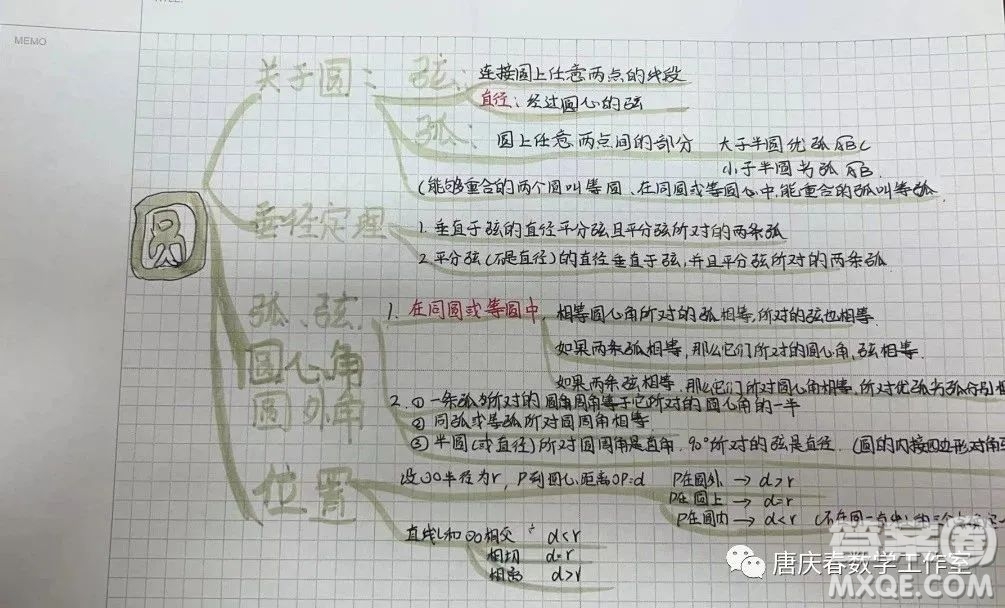 MEMO
关于圆:
弦: 连接圆上任意两点的线段
直径: 经过圆心的弦
弧: 圆上任意两点间的部分 大于半圆优弧 ABC
小于半圆劣弧 AB.
(能够重合的两个圆叫等圆、在同圆或等圆心中,能重合的弧叫等弧
圆
垂径定理
1. 垂直于弦的直径平分弦且平分弦所对的两条弧
2. 平分弦(不是直径)的直径垂直于弦,并且平分弦所对的两条弧.
弧、弦、
圆心角
圆外角
1. 在同圆或等圆中, 相等圆心角所对的弧相等,所对的弦也相等.
如果两条弧相等,那么它们所对的圆心角、弦相等.
如果两条弦相等,那么它们所对圆心角相等,所对优弧与弧分别相
2. ① 一条弧所对的圆角周角等于它所对的圆心角的一半
② 同弧或等弧所对圆周角相等
③ 半圆(或直径)所对圆周角是直角. 90°所对的弦是直径. (圆的内接四边形对角互
位置
设⊙O半径为r, P到圆心距离OP=d P在圆外 → d>r
P在圆上 → d=r
P在圆内 → d<r (不在同一直线
直线l和⊙O相交 d<r
相切 d=r
相离 d>r
唐庆春数学工作室
答案圈
MXQE.COM